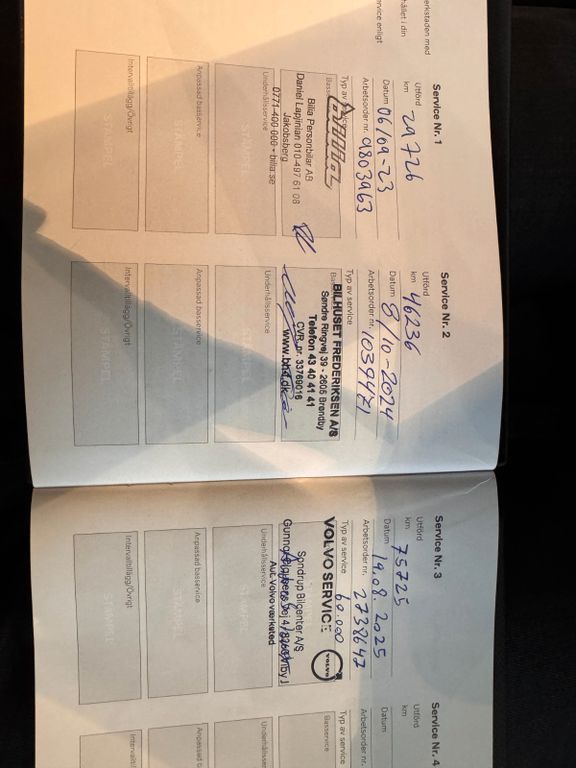 erkstaden med
hållet i din
rvice enligt
Service Nr. 1
Utförd
km 29726
Datum 06/09-23
Arbetsorder nr. 9803963
Typ av service
Bilia Personbilar AB
Daniel Lapjinian 010-497 61 08
Jakobsberg
0771-400 000 • bilia.se
Underhållsservice
STÄMPEL
Anpassad basservice
STÄMPEL
Intervalltillägg/Övrigt
STÄMPEL
Service Nr. 2
Utförd
km 46236
Datum 8/10-2024
Arbetsorder nr. 1039471
Typ av service
BILHUSET FREDERIKSEN A/S
Søndre Ringvej 39 - 2605 Brøndby
Telefon 43 40 41 41
CVR. nr. 33769016
Underhållsservice
STÄMPEL
Anpassad basservice
STÄMPEL
Intervalltillägg/Övrigt
STÄMPEL
Service Nr. 3
Utförd
km 75725
Datum 19.08.2025
Arbetsorder nr. 2738647
Typ av service 60.000
VOLVO SERVICE
VOLVO
Søndrup Bilcenter A/S
Aut. Volvo værksted
Underhållsservice
STÄMPEL
Anpassad basservice
STÄMPEL
Intervalltillägg/Övrigt
STÄMPEL
Service Nr. 4
Utförd
km
Datum
Arbetsorder nr.
Typ av service
Basservice
Underhållsse
Anpassad ba
Intervalltil